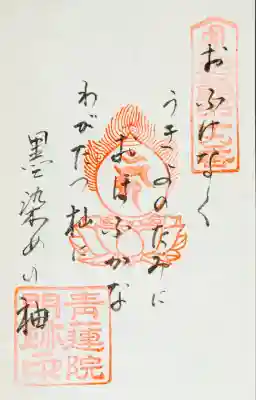 おふけなく
うき よのたみに
おほふかな
わがたつ杣に
墨染めの袖
青蓮院
門跡印